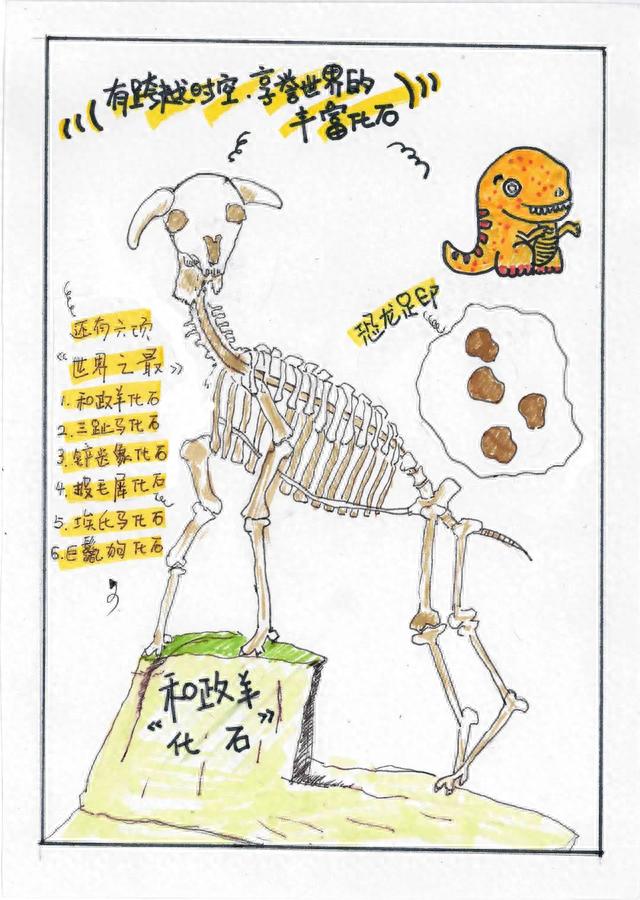 有跨越时空.享誉世界的
丰富化石
恐龙足印
还有六项
“世界之最”
1. 和政羊化石
2. 三趾马化石
3. 铲齿象化石
4. 披毛犀化石
5. 埃氏马化石
6. 巨鬣狗化石
和政羊
“化石”